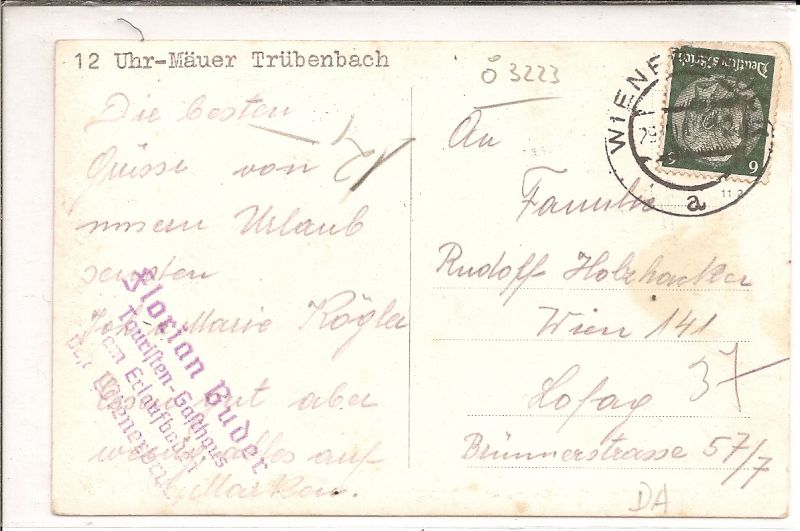 12 Uhr-Mäuer Trübenbach
Ö 3223
Die besten
Grüsse von
unserm Urlaub
senden
Marie Kögler
gut aber
alles auf
Marken.
Florian Buder
Touristen-Gasthaus
am Erlaufboden
WIENE
Deutsches Reich
6 6
a
An
Familie
Rudolf Holzhacker
Wien 141
Lofag
Brünnerstrasse 57/7
37
DA